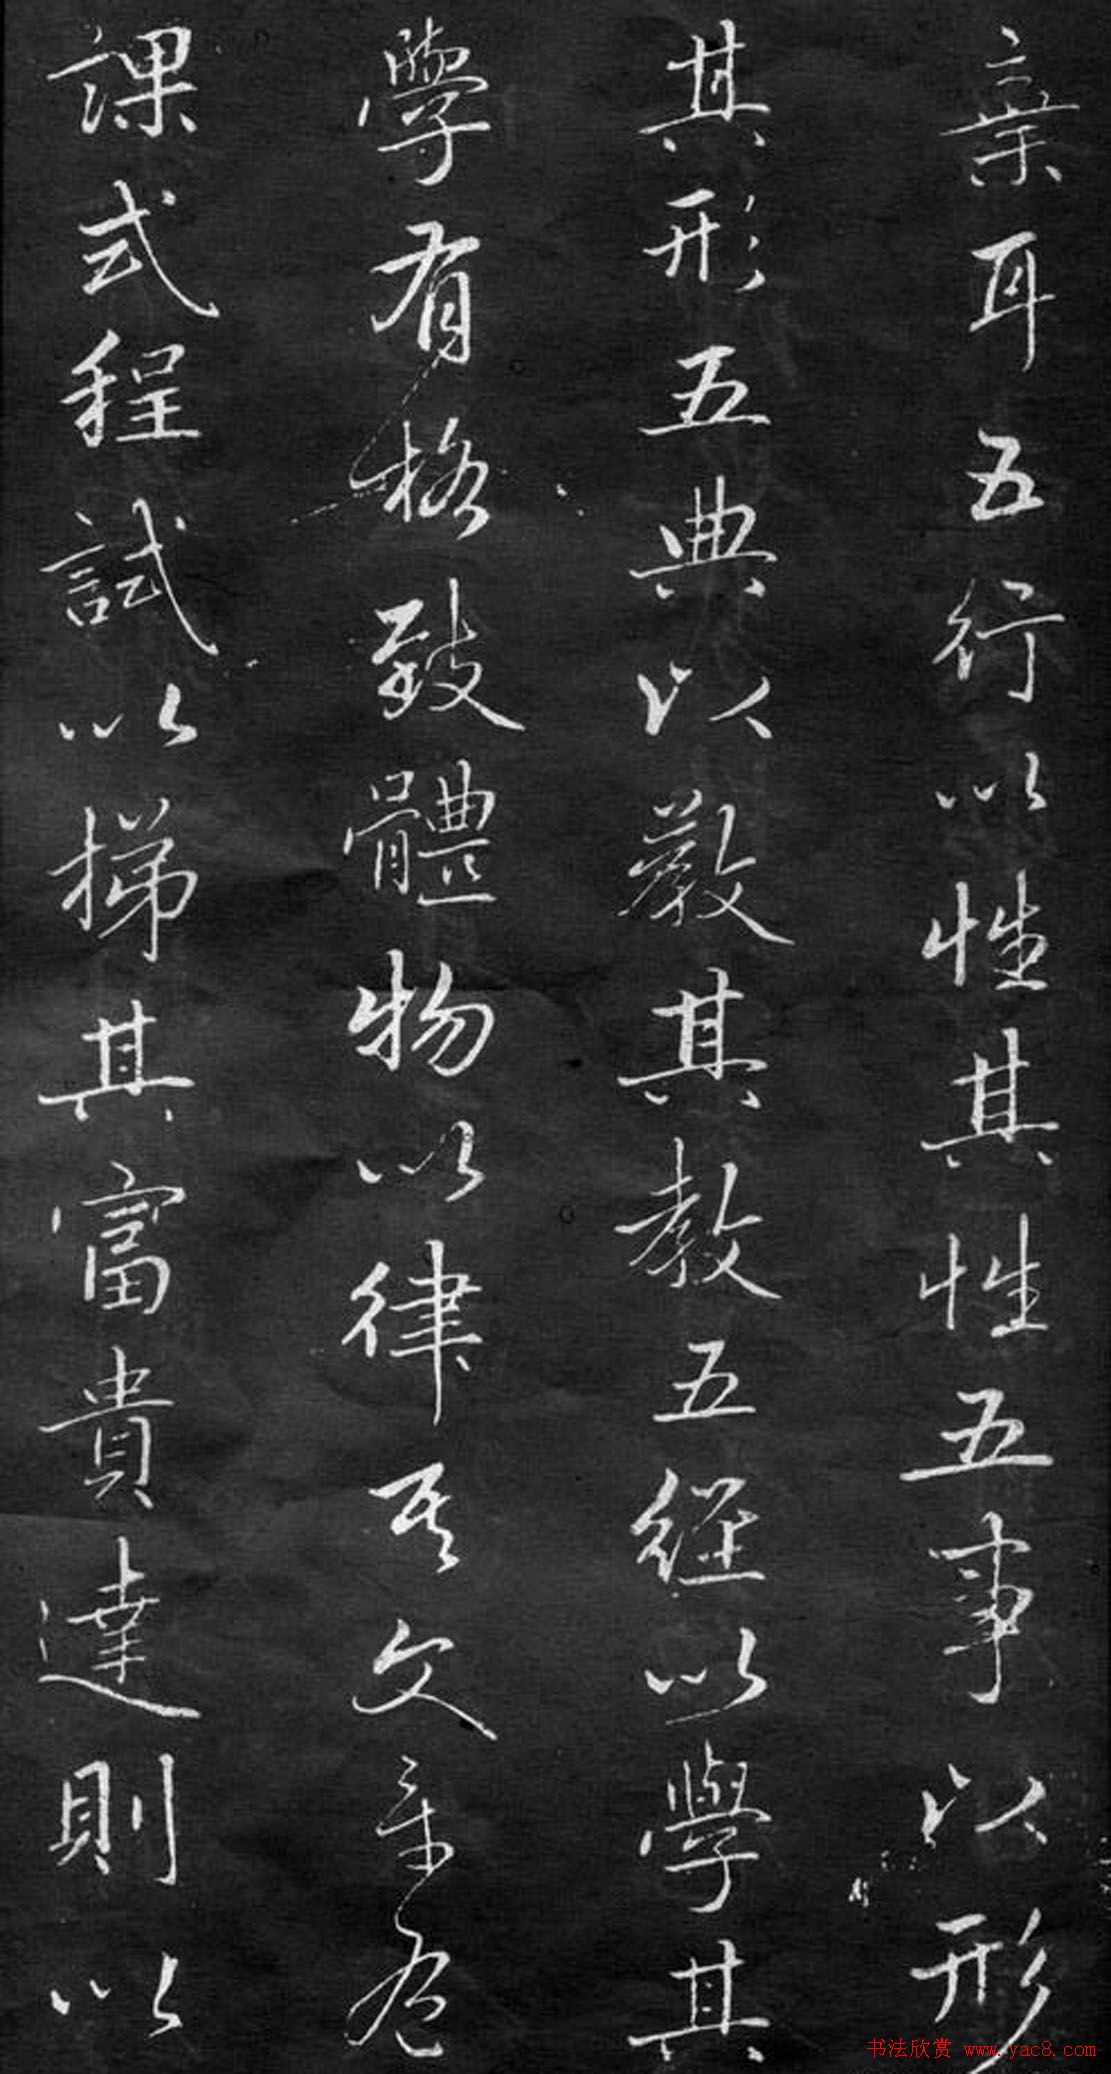 棄耳五行以性其性五事以形
其形五典以教其教五經以學其
學有格致體物以律其文章
課式程試以梯其富貴達則以
书法欣赏 www.yac8.com